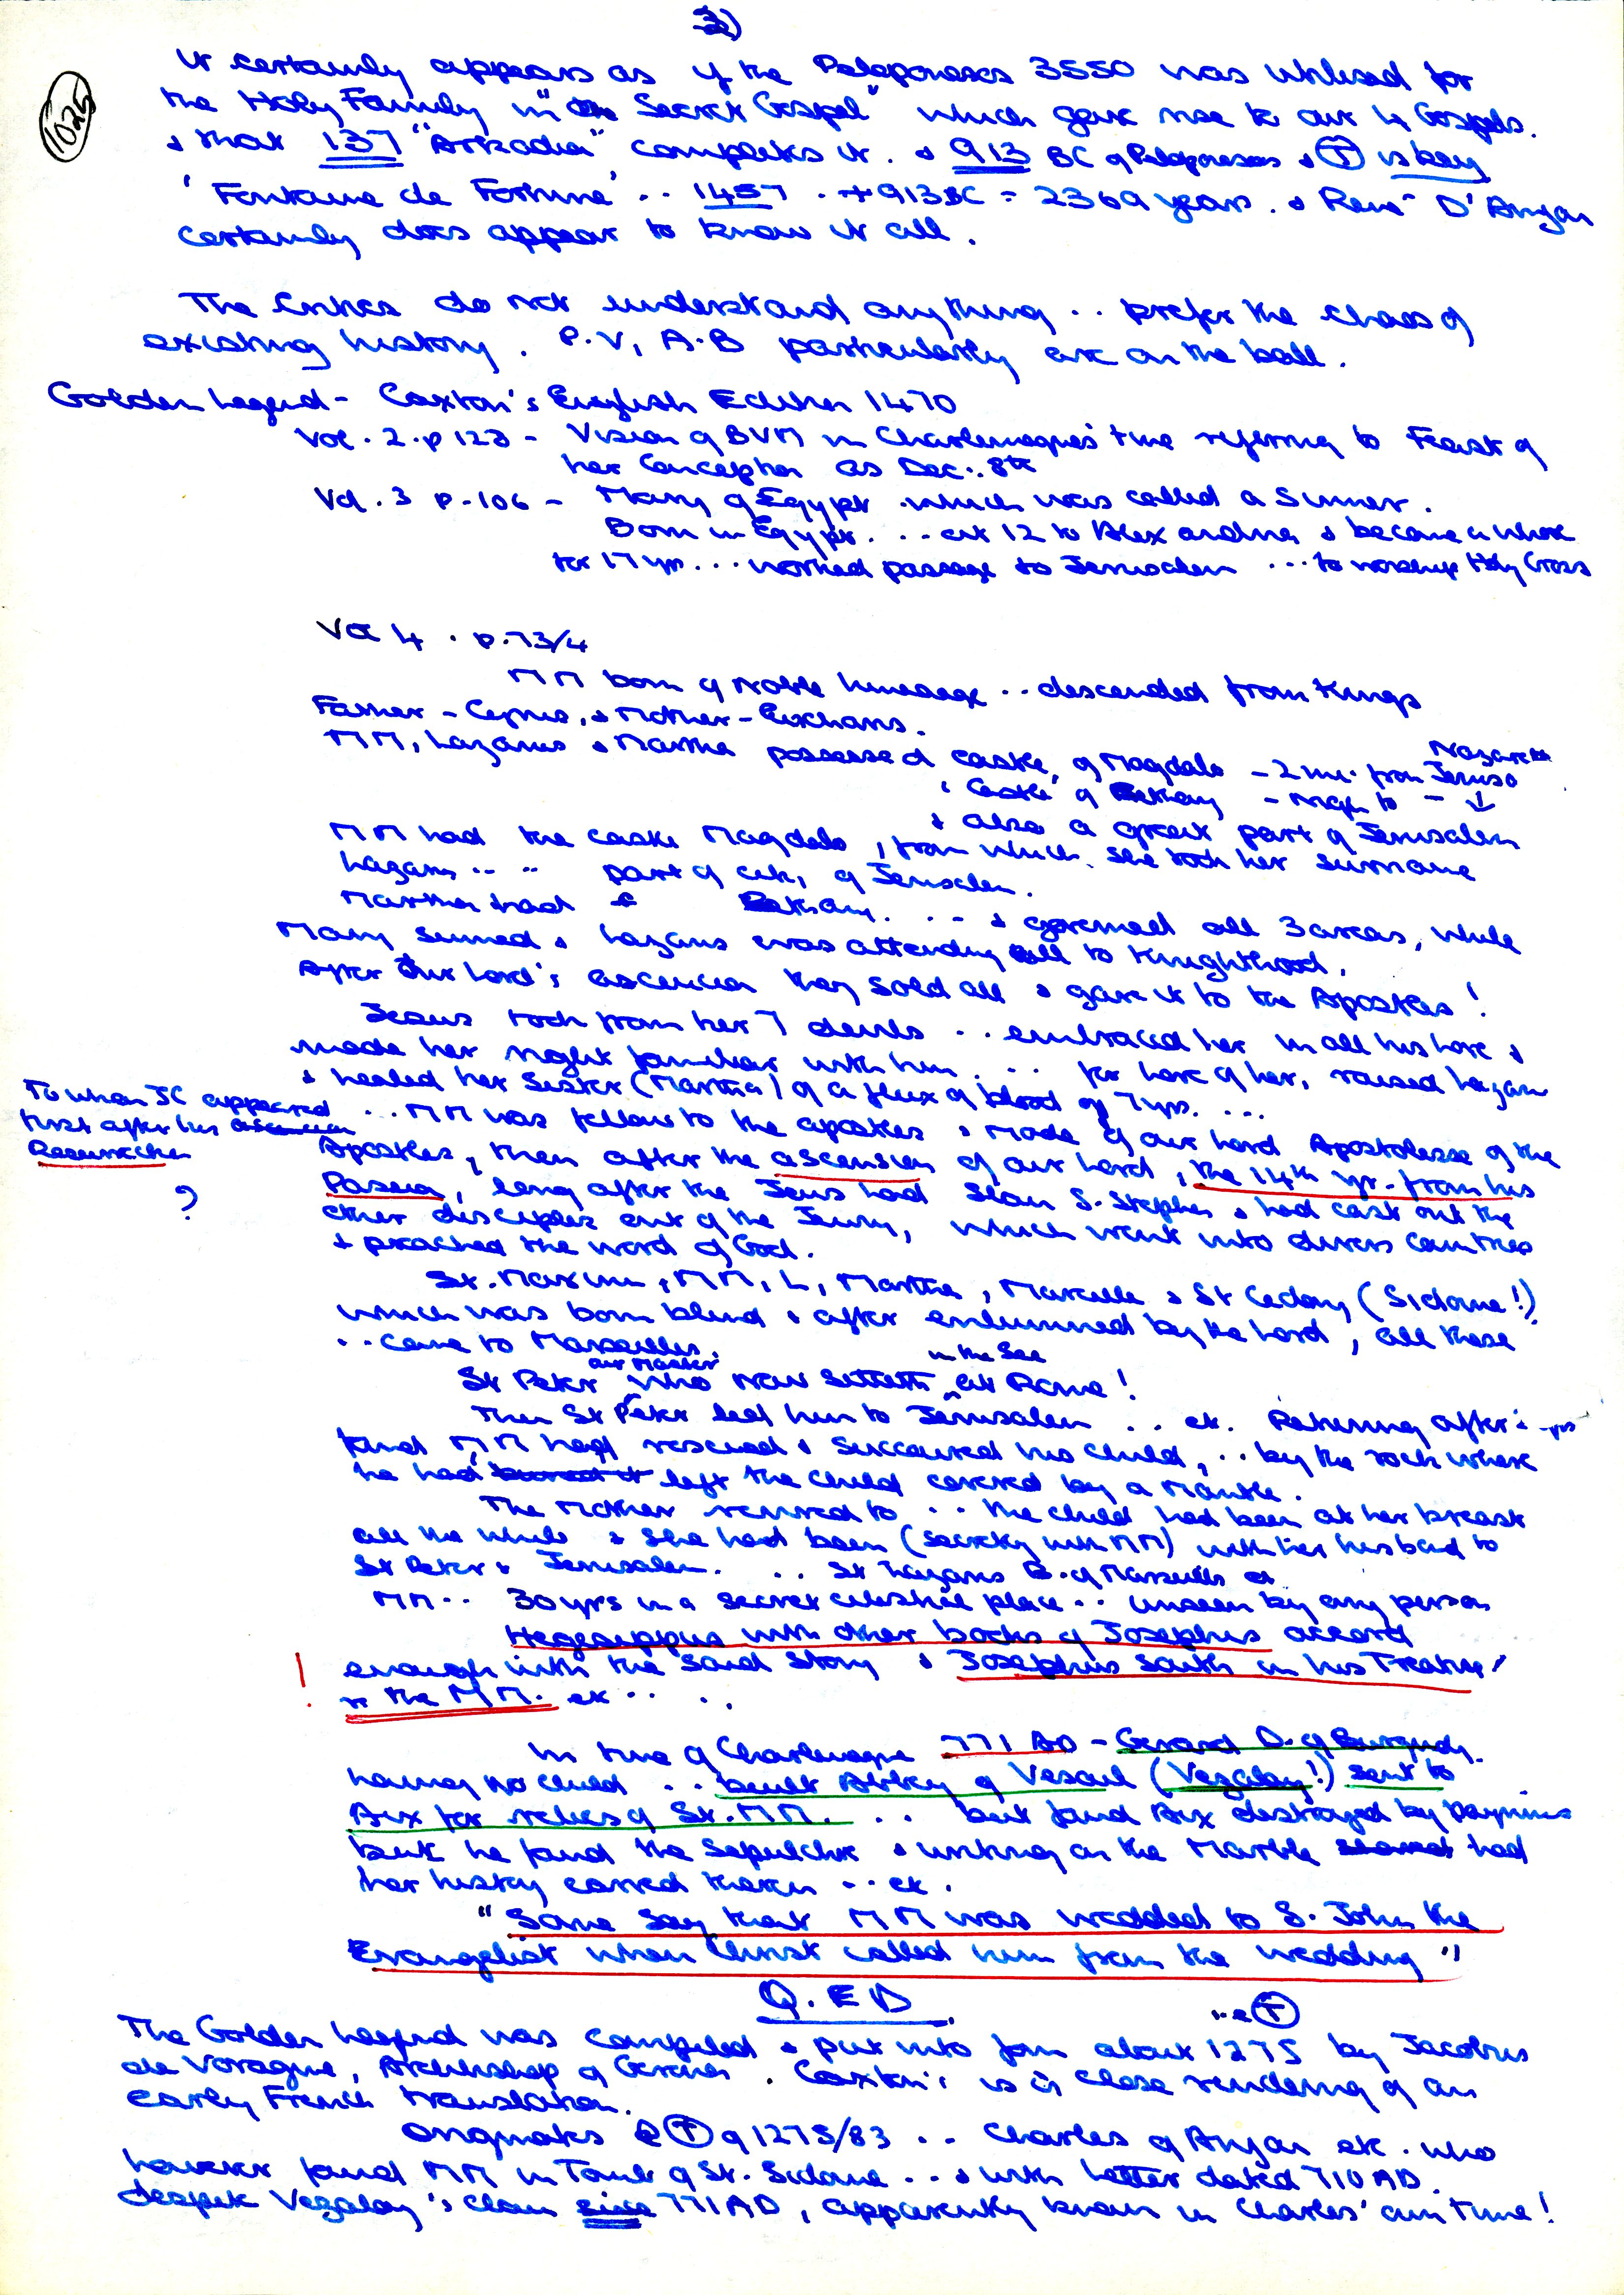 3)
1025
It certainly appears as if the Peloponeses 3550 was utilised for
the Holy Family in "Secret Gospel" which gave rise to our 4 Gospels.
& that 137 "Arkadia" completes it. & 913 BC of Peloponeses & T is key
'Fontaine de Fortune' .. 1457 . + 913 BC = 2369 years . & René D'Anjou
certainly does appear to know it all.
The Critics do not understand anything .. prefer the chaos of
existing history. P.V, A.B particularly are on the ball.
Golden Legend - Caxton's English Edition 1470
Vol. 2. p 123 - Vision of BVM in Charlemagnes' time referring to Feast of
her Conception as Dec: 8th
Vol. 3 p. 106 - Mary of Egypt which was called a Sinner.
Born in Egypt. ... at 12 to Alexandria & became a whore
for 17 yrs ... worked passage to Jerusalem ... to worship Holy Cross
Vol 4 . p. 73/4
MM born of Noble lineage .. descended from Kings
Father - Cyrus, & Mother - Eucharis.
MM, Lazarus & Martha possessed castle, of Magdalo - 2 mi. from Nazareth Jeruso
, Castle of Bethany - nigh to - ↓
& also a great part of Jerusalem
MM had the castle Magdalo, from which she took her surname
Lazarus .. " part of city of Jerusalem.
Martha had " Bethany. ... & governed all 3 areas, while
Mary sinned & Lazarus was attending all to Knighthood.
After Our Lord's ascension they sold all & gave it to the Apostles!
Jesus took from her 7 devils .. embraced her in all his love &
made her right familiar with him ... for love of her, raised Lazarus
& healed her Sister (Martha) of a flux of blood of 7 yrs. ...
To whom JC appeared
first after his ascension
Resurrection
?
... MM was fellow to the apostles & made of our Lord Apostolesse of the
Apostles, then after the ascension of our Lord, the 14th yr. from his
Passion, long after the Jews had slain S. Stephen & had cast out the
other disciples out of the Jewry, which went into divers countries
& preached the word of God.
St. Maximin, MM, L, Martha, Marcelle & St Cedony (Sidoine!)
which was born blind & after enlumined by the Lord, all these
.. came to Marseilles.
St Peter our Master who now sitteth in the See at Rome!
Then St Peter led him to Jerusalem .. etc. Returning after
found MM had rescued & succoured his child, .. by the rock where
he had left the child covered by a Mantle.
The Mother revived to .. the child had been at her breast
all the while & she had been (secretly with MM) with her husband to
St Peter & Jerusalem. .. St Lazarus B. of Marseilles etc
MM .. 30 yrs in a secret celestial place .. unseen by any person
Hegesippus with other books of Josephus accord
! enough with the said story & Josephus saith in his Treatise
the MM. etc .. ..
In time of Charlemagne 771 AD - Gerard D. of Burgundy.
having no child .. built Abbey of Vesoul (Vezalay!) sent to
Aix for relics of St. MM. .. but found Aix destroyed by Paynims
but he found the Sepulchre & writing on the Marble showed had
her history carved therein .. etc.
"Some say that MM was wedded to S. John the
Evangelist when Christ called him from the wedding"
Q.E.D
.. @ T
The Golden Legend was compiled & put into form about 1275 by Jacobus
de Voragine, Archbishop of Genoa. Caxton's is a close rendering of an
early French translation.
Originates @ T of 1275/83 .. Charles of Anjou etc. who
however found MM in Tomb of St. Sidoine .. & with letter dated 710 AD.
despite Vezalay's claim since 771 AD, apparently known in Charles' own time!